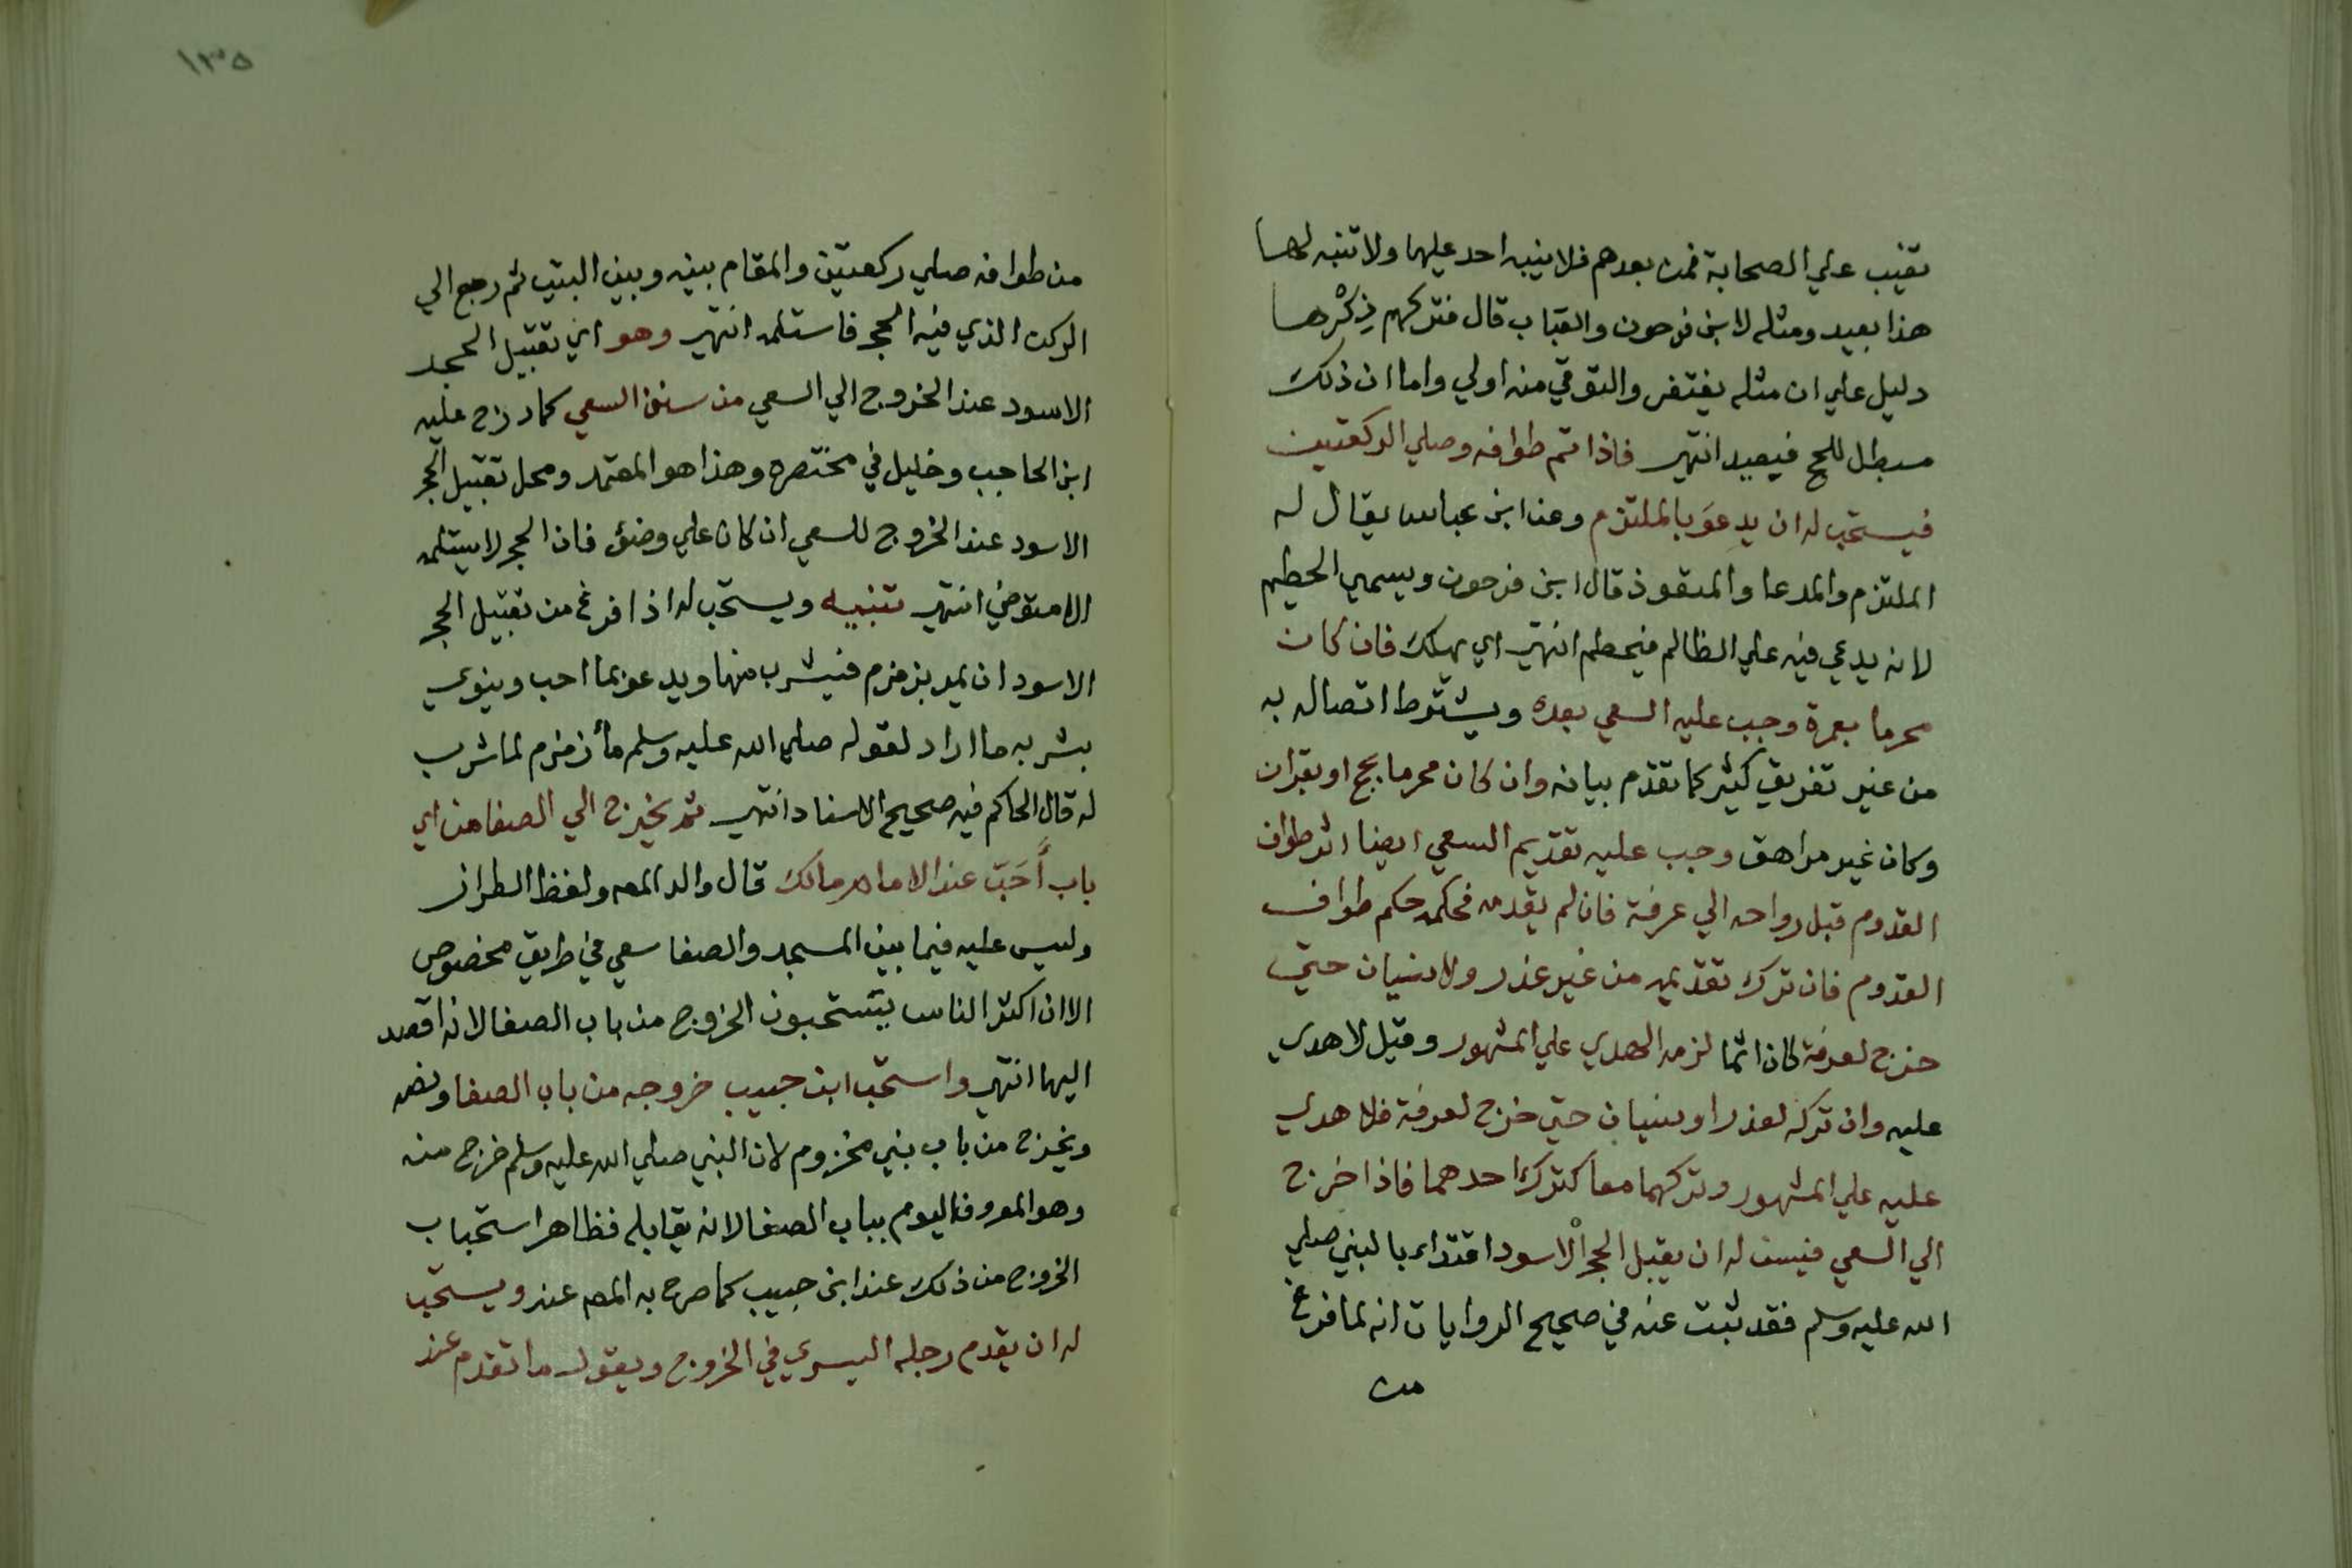 تغيب علي الصحابة فمن بعدهم فلا ينبه احد عليها ولا تنبه لها
هذا بعيد ومثله لابن فرحون والقباب قال فتركهم ذِكْرها
دليل علي ان مثله يغتفر والتوقي منه اولي واما ان ذلك
مبطل للحج فبعيد انتهي فاذا تم طوافه وصلي الركعتين
فيستحب له ان يدعوَ بالملتزم وعن ابن عباس يقال له
الملتزم والمدعا والمتعوذ قال ابن فرحون ويسمي الحطيم
لانه يدعي فيه علي الظالم فيحطم انتهي اي يهلك فان كان
محرما بعمرة وجب عليه السعي بعده ويشترط اتصاله به
من غير تفريق كثير كما تقدم بيانه وان كان محرما بحج او بقران
وكان غير مراهق وجب عليه تقديم السعي ايضا اثر طواف
القدوم قبل رواحه الي عرفة فان لم يقدمه فحكمه حكم طواف
القدوم فان ترك تقديمه من غير عذر ولا نسيان حتي
خرج لعرفة كان اثما لزمه الهدي علي المشهور وقيل لا هدي
عليه وان تركه لعذر او نسيان حتي خرج لعرفة فلا هدي
عليه علي المشهور وتركهما معا كترك احدهما فاذا خرج
الي السعي فيسن له ان يقبل الحجر الاسود اقتداء بالنبي صلي
الله عليه وسلم فقد ثبت عنه في صحيح الروايات انه لما فرغ
من
١٣٥
من طوافه صلي ركعتين والمقام بينه وبين البيت ثم رجع الي
الركن الذي فيه الحجر فاستلمه انتهي وهو اي تقبيل الحجر
الاسود عند الخروج الي السعي من سنن السعي كما درج عليه
ابن الحاجب وخليل في مختصره وهذا هو المعتمد ومحل تقبيل الحجر
الاسود عند الخروج للسعي ان كان علي وضئ فان الحجر لا يستلمه
الا متوضي انتهي تنبيه ويستحب له اذا فرغ من تقبيل الحجر
الاسود ان يمر بزمزم فيشرب منها ويدعو بما احب وينوي
بشربه ما اراد لقوله صلي الله عليه وسلم مأ زمزم لما شرب
له قال الحاكم فيه صحيح الاسناد انتهي ثم يخرج الي الصفا من اي
باب أَحَبّ عند الامام مالك قال والد المص ولفظ الطراز
وليس عليه فيما بين المسجد والصفا سعي في طريق مخصوص
الا ان اكثر الناس يستحبون الخروج من باب الصفا لانه اقصد
اليها انتهي واستحب ابن حبيب خروجه من باب الصفا ونصه
ويخرج من باب بني مخزوم لان النبي صلي الله عليه وسلم خرج منه
وهو المعروف اليوم بباب الصفا لانه يقابله فظاهر استحباب
الخروج من ذلك عند ابن حبيب كما صرح به المص عنه ويستحب
له ان يقدم رجله اليسري في الخروج ويقول ما تقدم عند